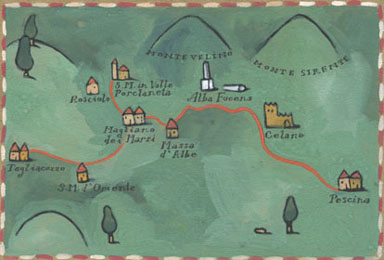 MONTE VELINO
MONTE SIRENTE
S.M. in Valle
Porclaneta
Rosciolo
Alba Fucens
Magliano
dei Marsi
Massa
d'Albe
Celano
Tagliacozzo
S.M. d'Oriente
Pescina